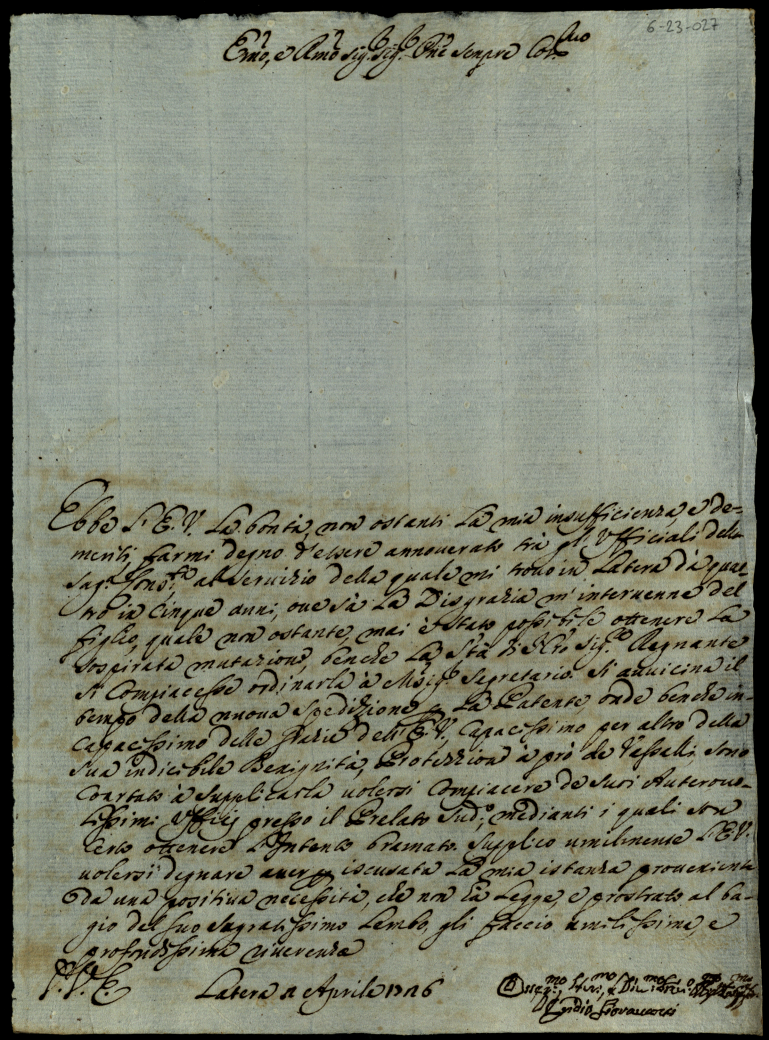 6-23-027
Em̃o, e Rm̃o Sig. Sig. Pñe sempre Col.mo
Ebbe l'E.V. la bontà, non ostanti la mia insufficienza, e de-
meriti, farmi degno d'essere annoverato trà gl'Ufficiali della
Sag. Cons.ta al servizio della quale mi trovo in Latera dà quat-
tro in cinque anni, ove sà la Disgrazia m'intervenne del
figlio, quale non ostante, mai è stato possibile ottenere la
sospirata mutazione, benche la S.tà di N.ro Sig.re Regnante
si compiacesse ordinarla à Mons.r Segretario. Si avvicina il
tempo della nuova spedizione p la Patente, onde benche in-
capacissimo delle grazie dell'E.V., capacissimo per altro della
sua indicibile Benignità, Protezzione à prò de Vassalli, sono
à supplicarla volersi compiacere de suoi Autorevo-
lissimi Ufficij presso il Prelato Sud.o, medianti i quali son
certo ottenere l'Intento bramato. Supplico umilmente l'E.V.
volersi degnare aver iscusata la mia istanza proveniente
da una positiva necessità, che non hà Legge, e prostrato al ba-
gio del suo Sagratissimo Lembo, gli faccio umilissima, e
profondissima riverenza
D. V. E. Latera Aprile 1726
mo mo mo
Egidio